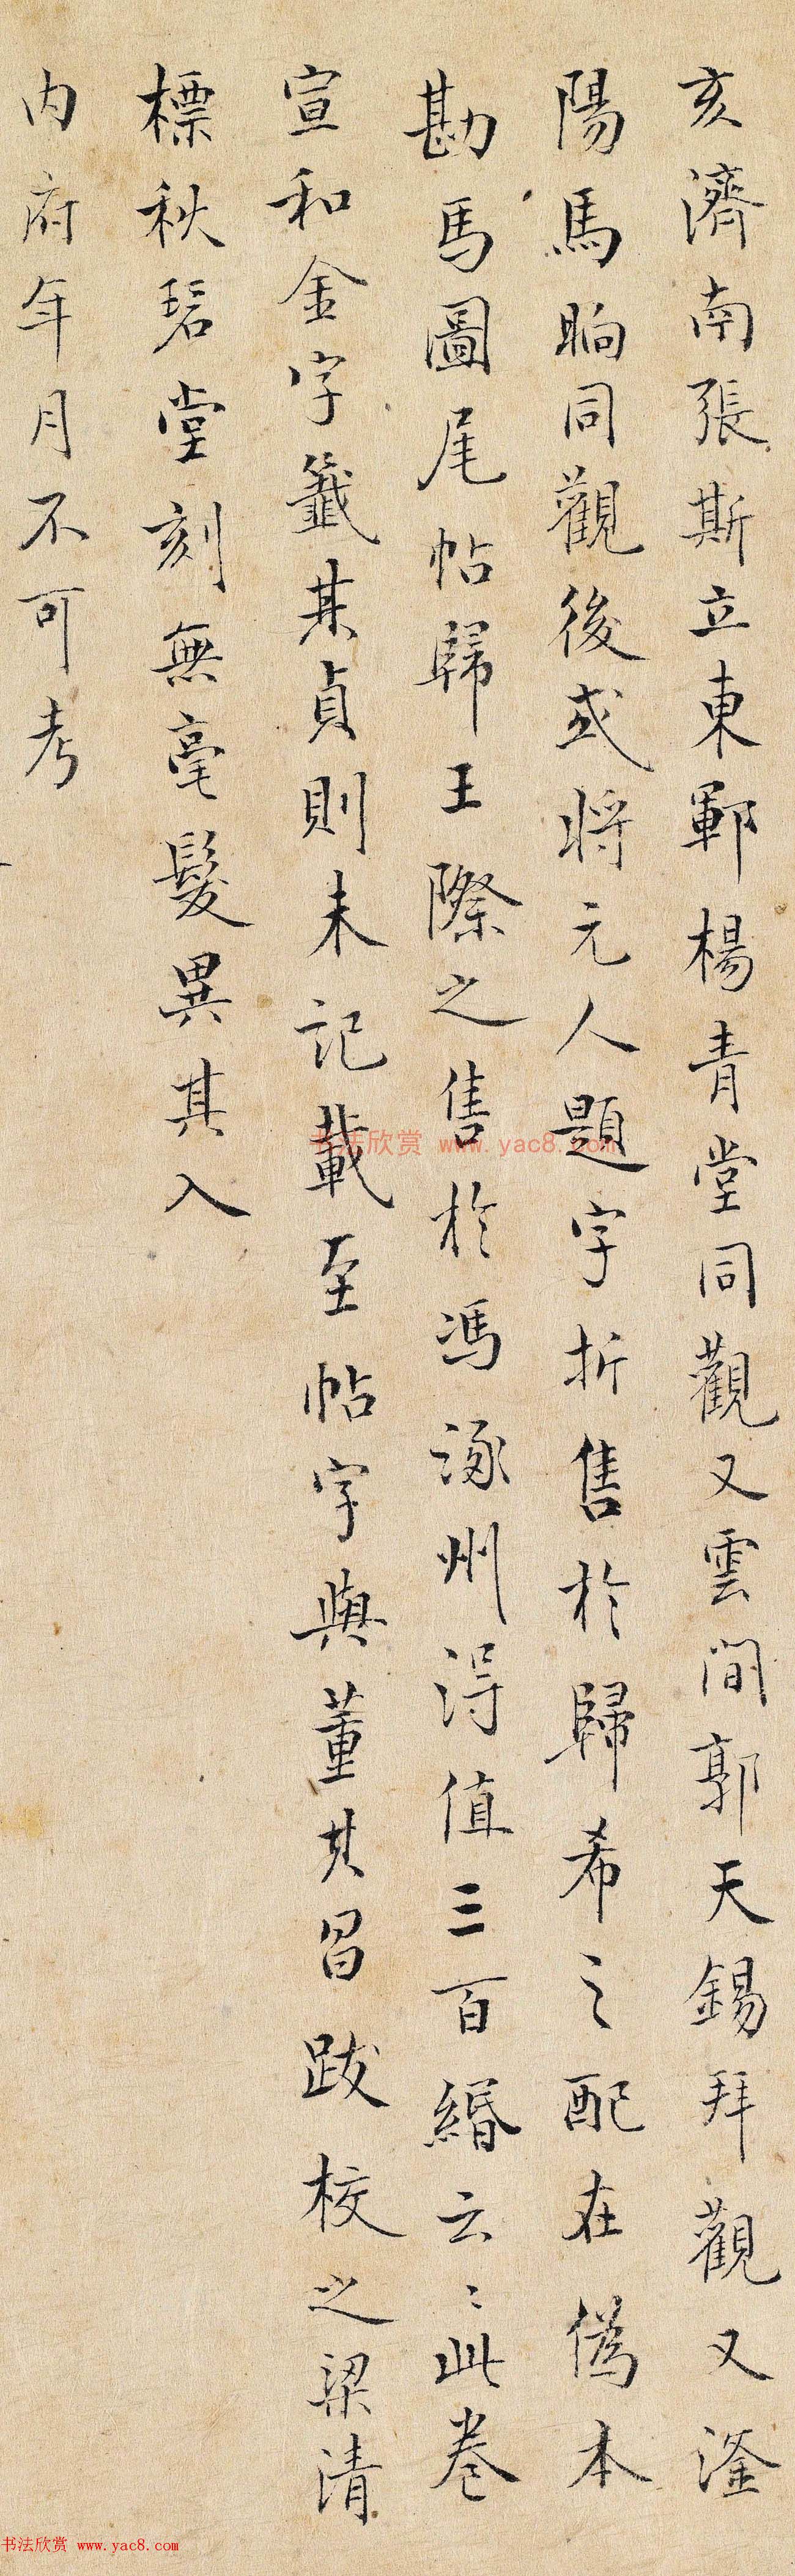 亥濟南張斯立東鄆楊青堂同觀又雲間郭天錫拜觀又滏
陽馬晌同觀後或將元人題字折售於歸希之配在偽本
勘馬圖尾帖歸王際之售於馮涿州得值三百緡云〻此卷
宣和金字籤某貞則未記載至帖字與董其昌跋校之梁清
標秋碧堂刻無毫髮異其入
內府年月不可考
书法欣赏 www.yac8.com
书法欣赏 www.yac8.com